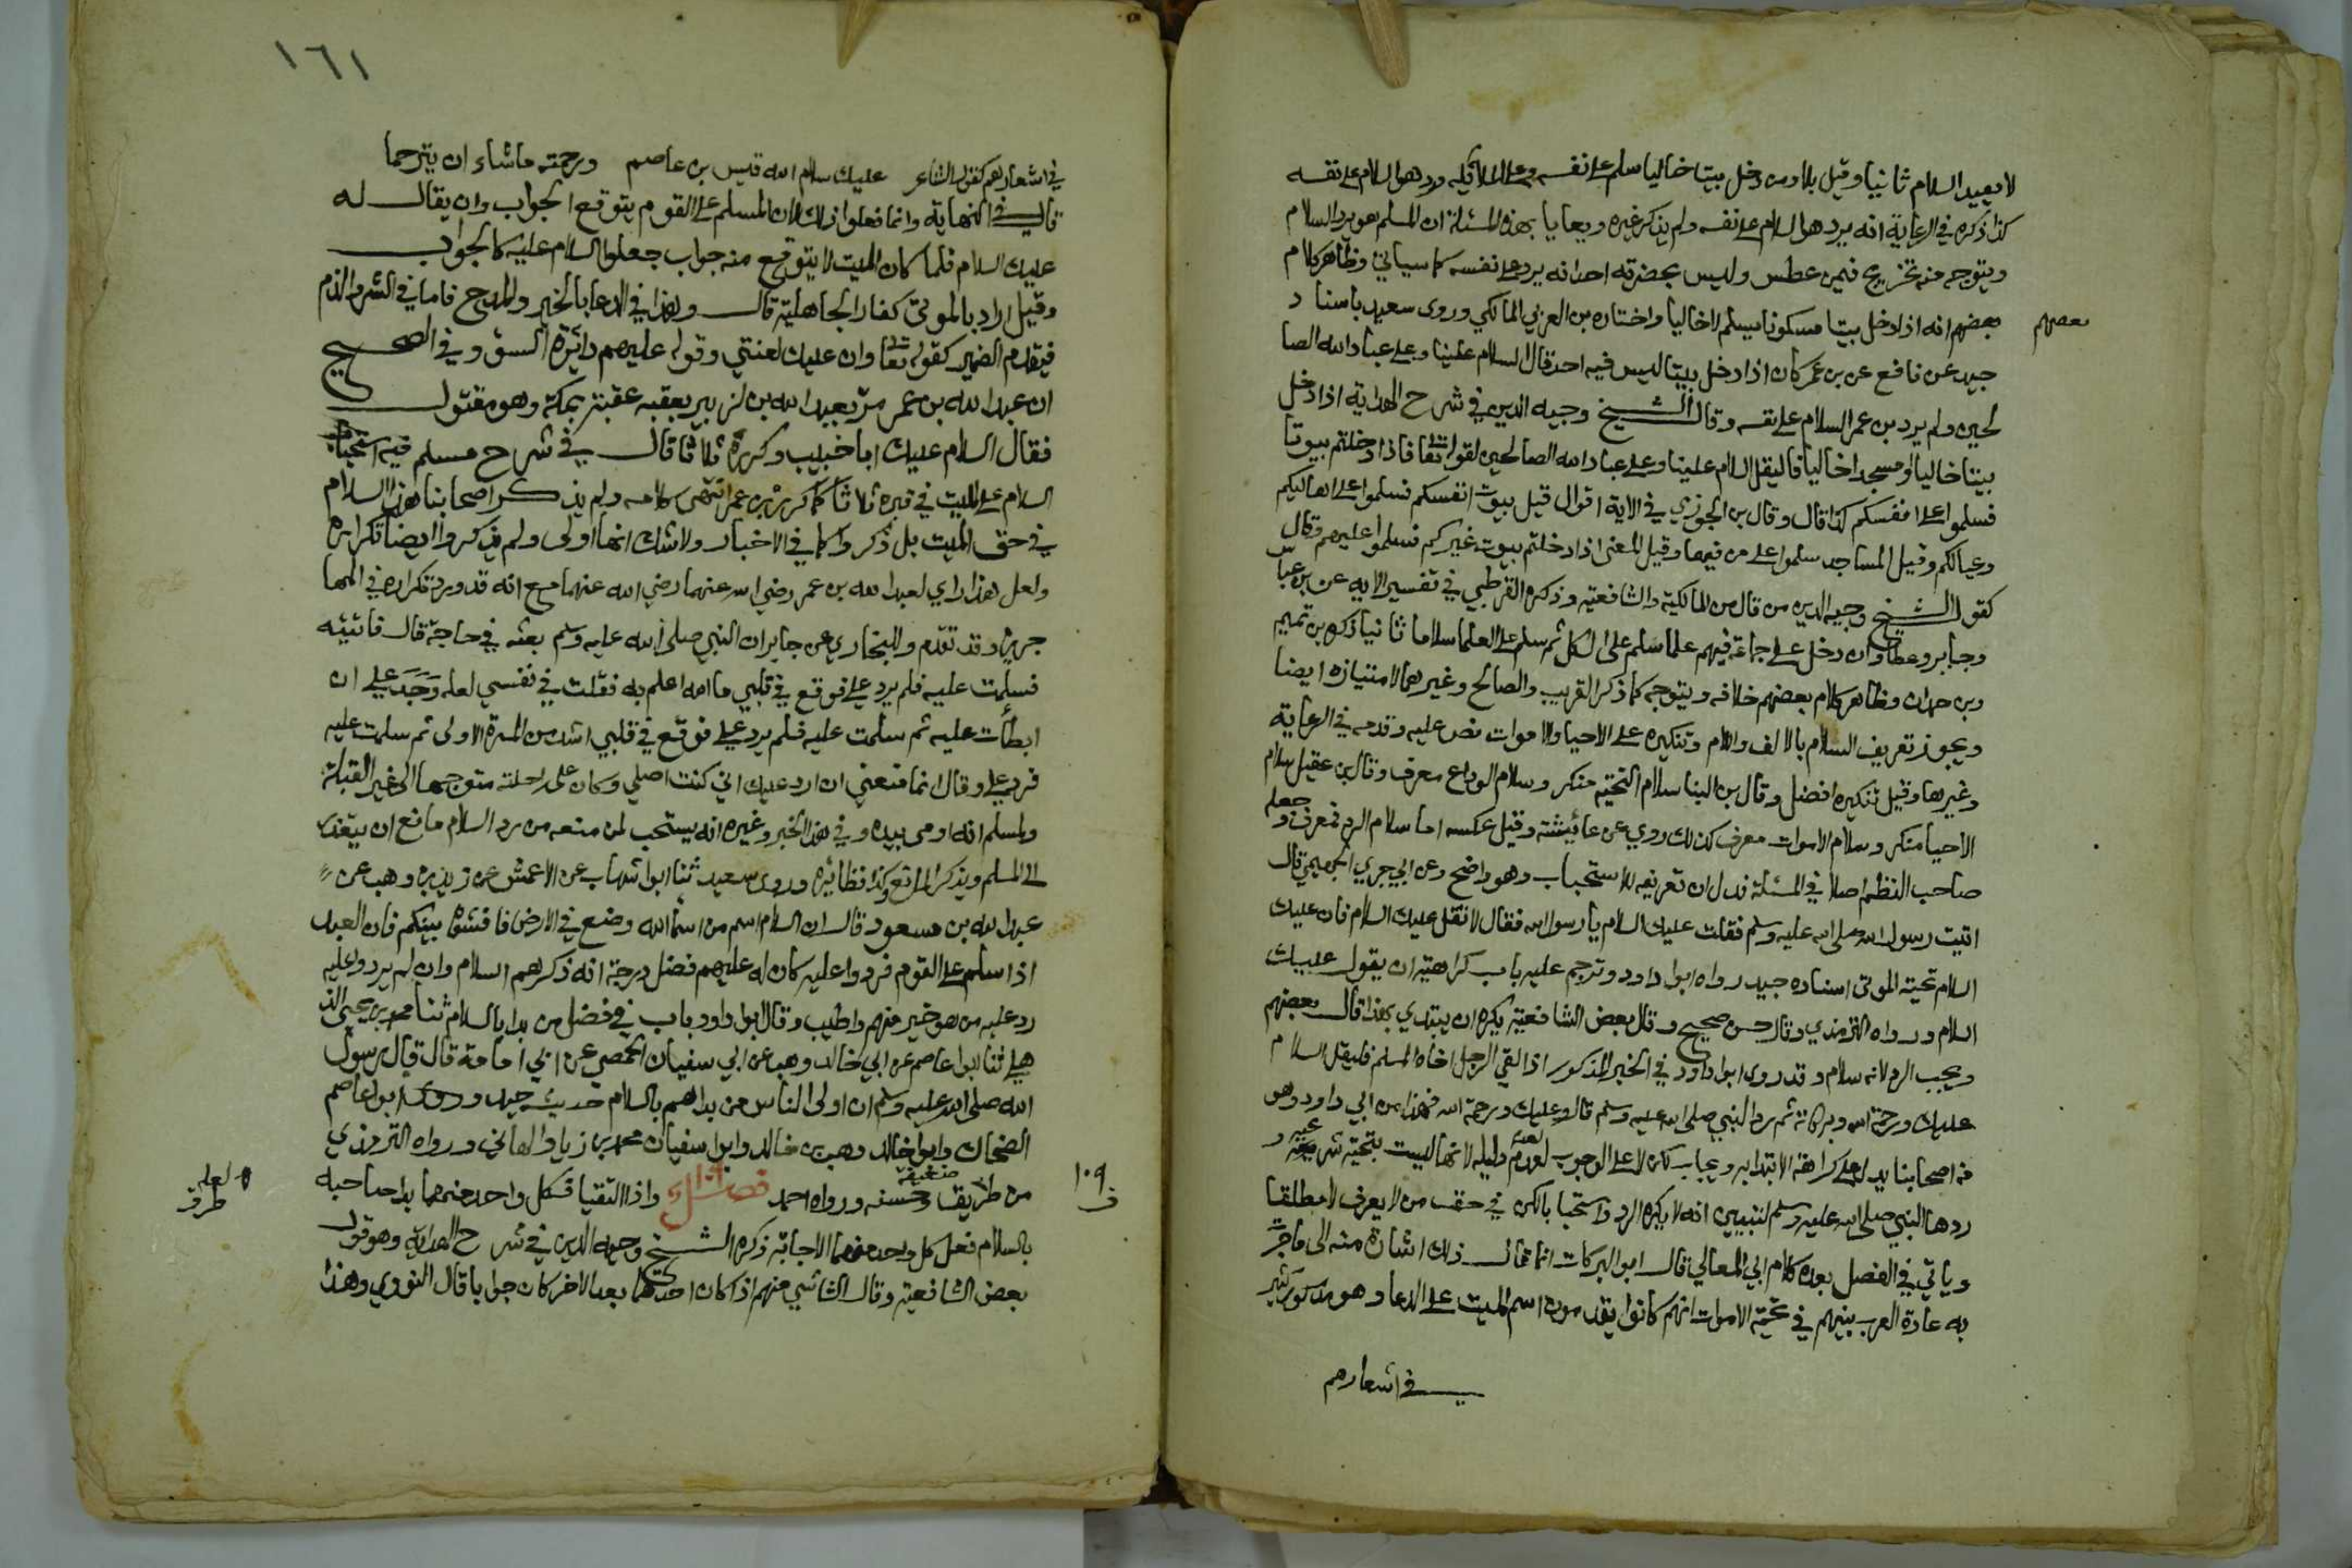 لا يعيد السلام ثانيا وقيل بلا ومن دخل بيتا خاليا سلم على نفسه وعلى الملائكة ورد هو السلام على نفسه
كذا ذكره في الرعاية انه يرد هو السلام على نفسه ولم يذكر غيره ويعايا بهذه المسئلة ان المسلم هو يرد السلام
ويتوجه منه تخريج فيمن عطس وليس بحضرته احد انه يرد على نفسه كما سياتي وظاهر كلام
بعضهم انه اذا دخل بيتا مسكونا يسلم لا خاليا واختاره بن العربي المالكي وروى سعيد باسناد
بعضهم
جيد عن نافع عن بن عمر كان اذا دخل بيتا ليس فيه احد قال السلام علينا وعلى عباد الله الصا
لحين ولم يرد بن عمر السلام على نفسه وقال الشيخ وجيه الدين في شرح الهداية اذا دخل
بيتا خاليا او مسجدا خاليا فاليقل السلام علينا وعلى عباد الله الصالحين لقوله تعا فاذا دخلتم بيوتا
فسلموا على انفسكم كذا قال وقال بن الجوزي في الاية اقوال قيل بيوت انفسكم فسلموا على اهاليكم
وعيالكم وقيل المساجد سلموا على من فيها وقيل المعنى اذا دخلتم بيوت غيركم فسلموا عليهم وقال
كقول الشيخ وجيه الدين من قال من المالكية والشافعية وذكره القرطبي في تفسير الايه عن بن عباس
وجابر وعطا وان دخل على جماعة فيهم علما سلم على الكل ثم سلم على العلما سلاما ثانيا ذكره بن تميم
وبن حمدان وظاهر كلام بعضهم خلافه ويتوجه كما ذكر القريب والصالح وغيرهما لامتيازه ايضا
ويجوز تعريف السلام بالالف واللام وتنكيره على الاحيا والاموات نص عليه وقدمه في الرعاية
وغيرها وقيل تنكيره افضل وقال بن البنا سلام التحية منكر وسلام الوداع معرف وقال بن عقيل سلام
الاحيا منكر وسلام الاموات معرف كذلك روي عن عائيشة وقيل عكسه اما سلام الرد فمعرف وجعله
صاحب النظم اصلا في المسئلة فدل ان تعريفه للاستحباب وهو واضح وعن ابي جري الهجيمي قال
اتيت رسول الله صلى الله عليه وسلم فقلت عليك السلام يا رسول الله فقال لا تقل عليك السلام فان عليك
السلام تحية الموتى اسناده جيد رواه ابوا داود وترجم عليه باب كراهية ان يقول عليك
السلام ورواه الترمذي وقال حسن صحيح وقال بعض الشافعية يكره ان يبتدي بهذا قال بعضهم
ويجب الرد لانه سلام وقد روى ابوا داود في الخبر المذكور اذا لقي الرجل اخاه المسلم فليقل السلام
عليك ورحمة الله وبركاته ثم رد النبي صلى الله عليه وسلم قال وعليك ورحمة الله فهذا من ابي داود وهو
من اصحابنا يدل على كراهة الابتدا به ويجاب لا على الوجوب لعدم دليله لانها ليست بتحية شرعيه و
ردها النبي صلى الله عليه وسلم لتبيين انه لا يكره الرد واستحبا بالكن في حقه من لا يعرف لا مطلقا
وياتي في الفصل بعده كلام ابي المعالي قال ابوا البركات انما قال ذلك اشارة منه الى ما جرت
به عادة العرب بينهم في تحية الاموات انهم كانوا يقدمون اسم الميت على الدعا وهو مذكور كثير
في اشعارهم
١٦١
في اشعارهم كقول الشاعر عليك سلام الله قيس بن عاصم ورحمته ماشاء ان يترحما
قال في النهاية وانما فعلوا ذلك لان المسلم على القوم يتوقع الجواب وان يقال له
عليك السلام فلما كان الميت لا يتوقع منه جواب جعلوا السلام عليه كالجواب
وقيل اراد بالموتى كفار الجاهلية قال وهذا في الدعا بالخير والمدح فاما في الشر والذم
فيقدم الضمير كقوله تعا وان عليك لعنتي وقوله عليهم دائرة السوء وفي الصحيح
ان عبد الله بن عمر مر بعبد الله بن الزبير بعقبه عقبة بمكة وهو مقتول
فقال السلام عليك ابا خبيب وكرره ثلاثا قال في شرح مسلم فيه استحباب
السلام على الميت في قبره ثلاثا كما كرره بن عمر انتهى كلامه ولم يذكر اصحابنا هذا السلام
في حق الميت بل ذكروا كما في الاخبار ولا شك انها اولى ولم يذكروا ايضا تكراره
ولعل هذا راي لعبد الله بن عمر رضي الله عنهما رضي الله عنهما مع انه قد ورد تكراره في المها
جرين وقد تقدم وللبخاري عن جابر ان النبي صلى الله عليه وسلم بعثه في حاجة قال فاتيته
فسلمت عليه فلم يرد علي فوقع في قلبي ما الله اعلم به فقلت في نفسي لعله وجد علي ان
ابطأت عليه ثم سلمت عليه فلم يرد علي فوقع في قلبي اشد من المرة الاولى ثم سلمت عليه
فرد علي وقال انما منعني ان ارد عليك اني كنت اصلي وكان على راحلته متوجها الى غير القبلة
ولمسلم انه اومى بيده وفي هذا الخبر وغيره انه يستحب لمن منعه من رد السلام مانع ان يتعذر
الى المسلم ويذكر المانع وكذا نظائره وروى سعيد ثنا ابوا شهاب عن الاعمش عن زيد بن وهب عن
عبد الله بن مسعود قال ان السلام اسم من اسما الله وضع في الارض فافشوه بينكم فان العبد
اذا سلم على القوم فردوا عليه كان له عليهم فضل درجة انه ذكرهم السلام وان لم يردوا عليه
رد عليه من هو خير منهم واطيب وقال ابوا داود باب في فضل من بدا بالسلام ثنا محمد بن يحيى الذ
هلي ثنا ابوا عاصم عن ابي خالد وهب عن ابي سفيان الحمصي عن ابي امامة قال قال رسول
الله صلى الله عليه وسلم ان اولى الناس من بداهم بالسلام حديث جيد وروى ابوا عاصم
الضحاك وابوا خالد وهب بن خالد وابوا سفيان محمد بن زياد الهاني ورواه الترمذي
من طريق ضعيفة وحسنه ورواه احمد فصل ١٠٩ واذا التقيا فكل واحد منهما بدا صاحبه
لعله طرق
١٠٩ ف
بالسلام فعلى كل واحد منهما الاجابة ذكره الشيخ وجيه الدين في شرح الهداية وهو قول
بعض الشافعية وقال الشاشي منهم اذا كان احدهما بعد الاخر كان جوابا قال النووي وهذا